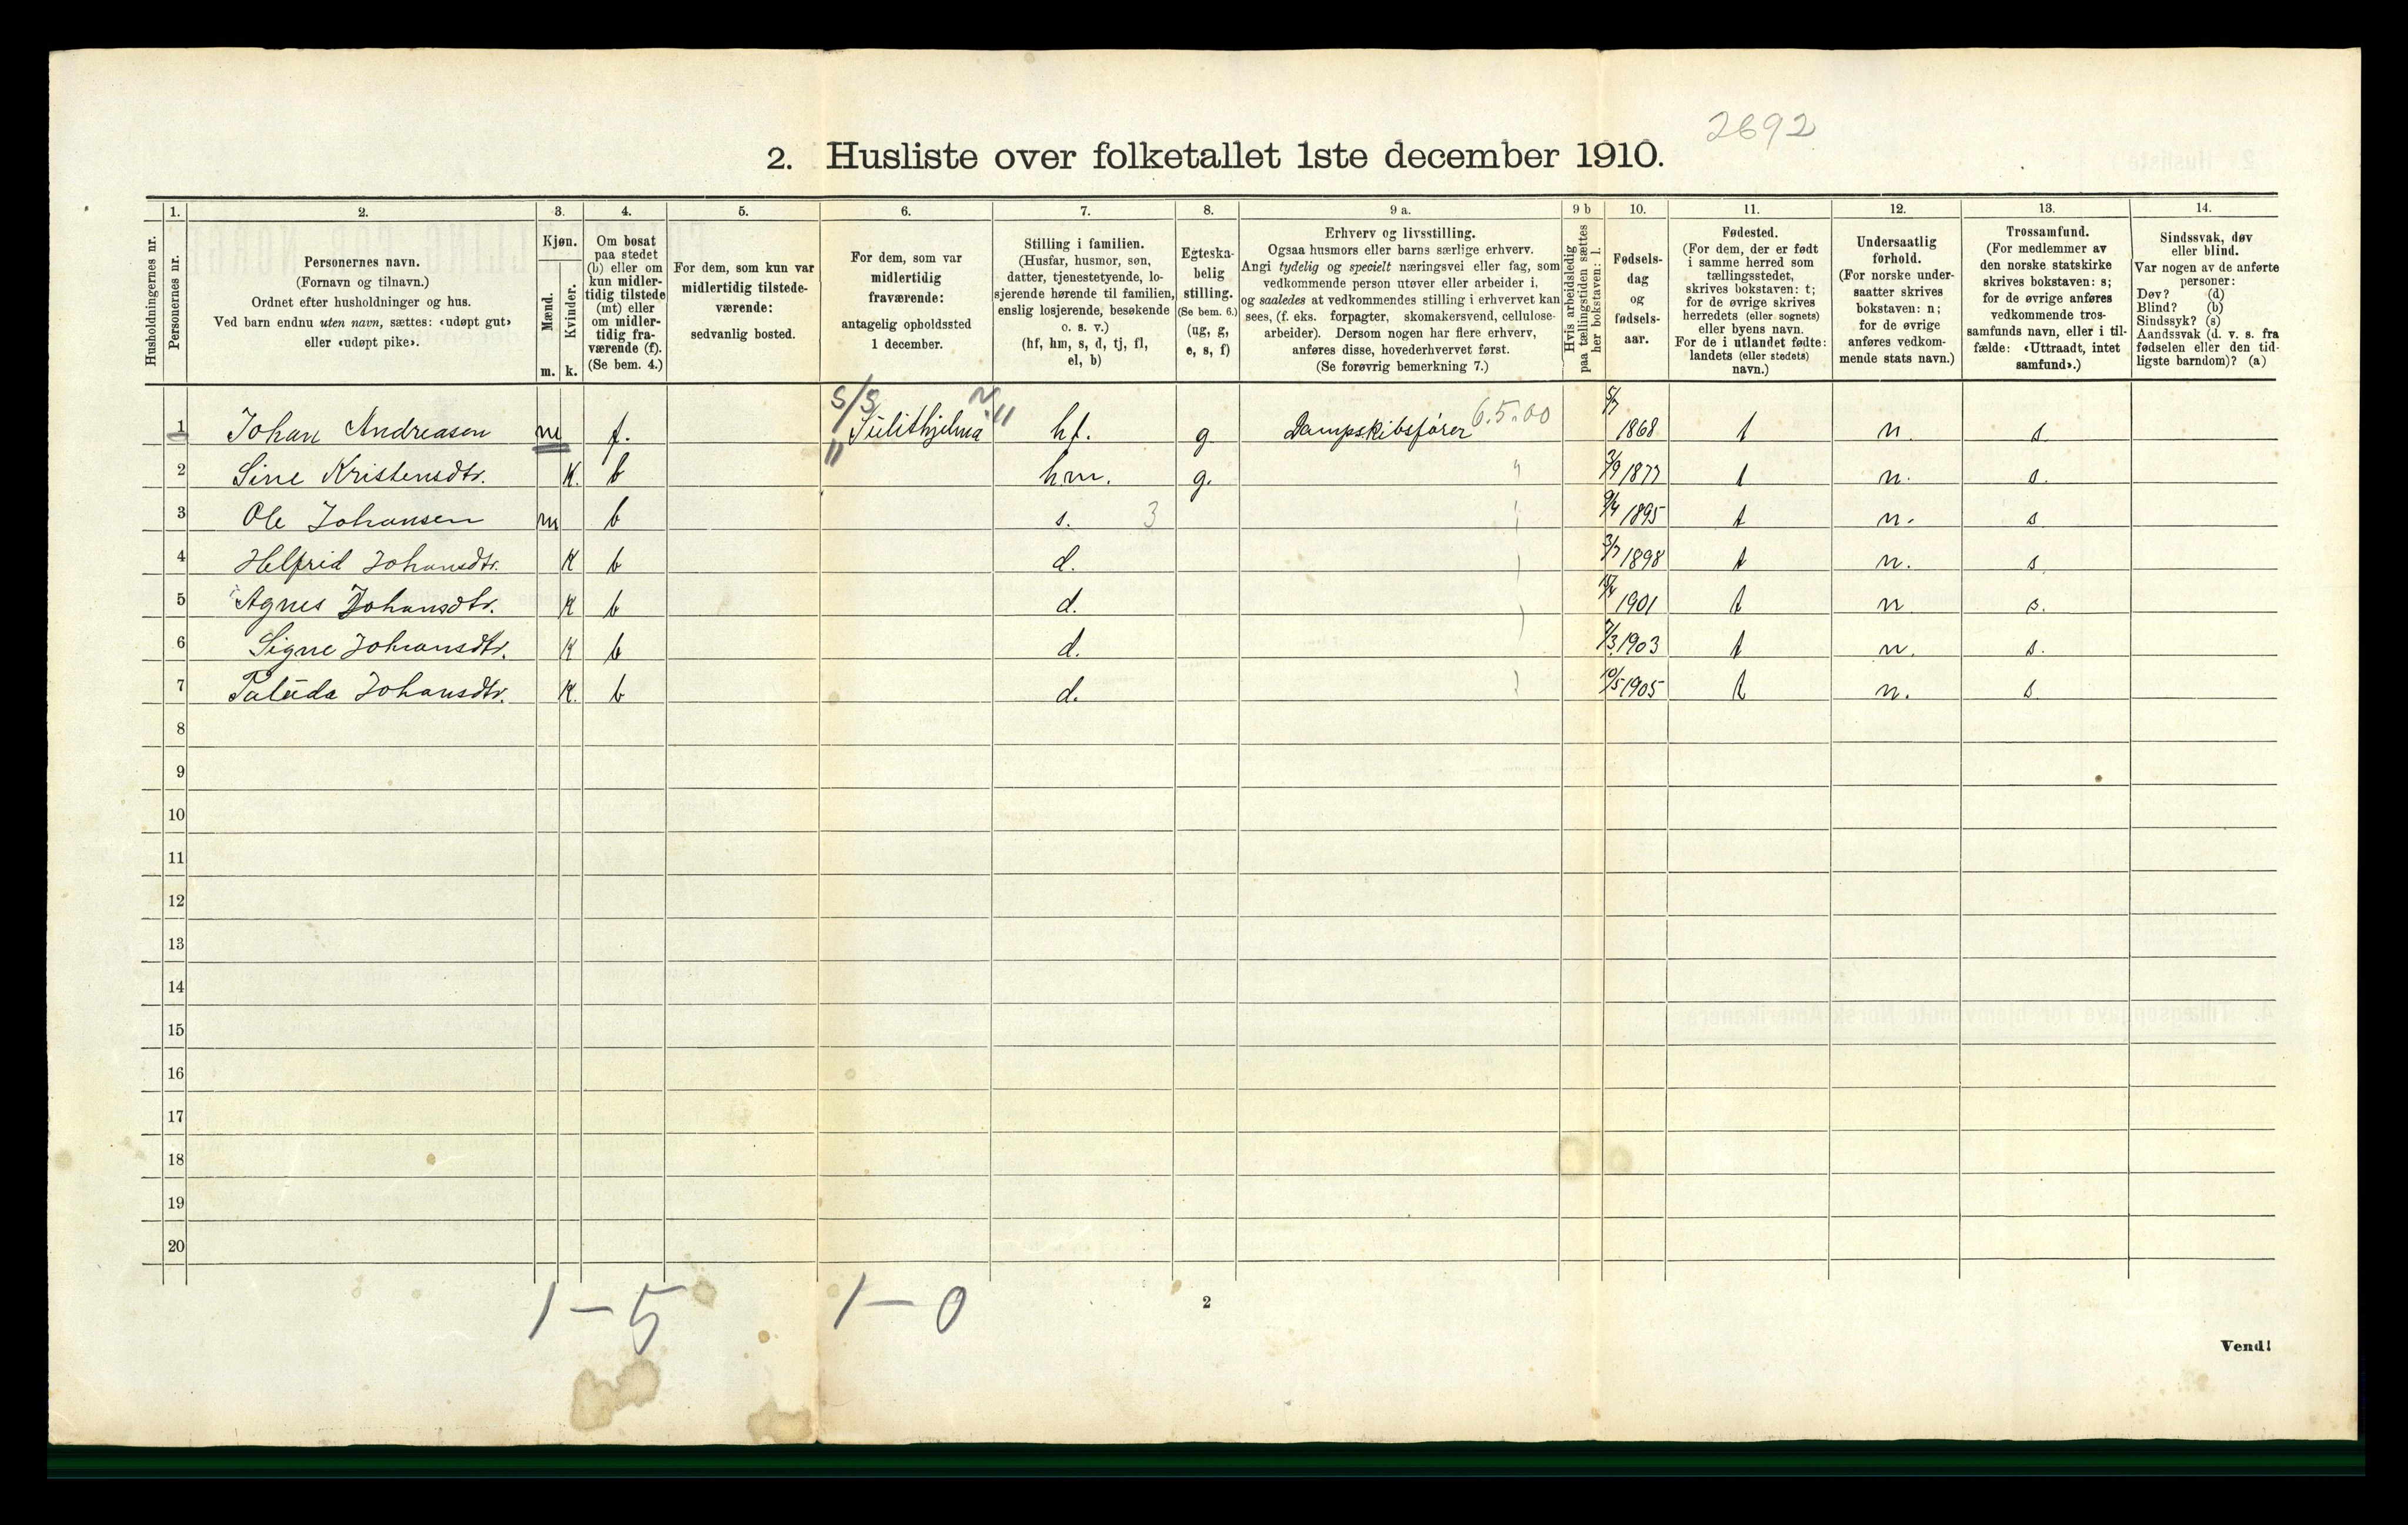 2692
2. Husliste over folketallet 1ste december 1910.
Husholdningernes nr.
1.
Personernes nr.
2.
Personernes navn.
(Fornavn og tilnavn.)
Ordnet efter husholdninger og hus.
Ved barn endnu uten navn, sættes: «udøpt gut»
eller «udøpt pike».
3.
Kjøn.
Mænd.
Kvinder.
m. k.
4.
Om bosat
paa stedet
(b) eller om
kun midler-
tidig tilstede
(mt) eller
om midler-
tidig fra-
værende (f).
(Se bem. 4.)
5.
For dem, som kun var
midlertidig tilstede-
værende:
sedvanlig bosted.
6.
For dem, som var
midlertidig
fraværende:
antagelig opholdssted
1 december.
7.
Stilling i familien.
(Husfar, husmor, søn,
datter, tjenestetyende, lo-
sjerende hørende til familien,
enslig losjerende, besøkende
o. s. v.)
(hf, hm, s, d, tj, fl,
el, b)
8.
Egteska-
belig
stilling.
(Se bem. 6.)
(ug, g,
e, s, f)
9 a.
Erhverv og livsstilling.
Ogsaa husmors eller barns særlige erhverv.
Angi tydelig og specielt næringsvei eller fag, som
vedkommende person utøver eller arbeider i,
og saaledes at vedkommendes stilling i erhvervet kan
sees, (f. eks. forpagter, skomakersvend, cellulose-
arbeider). Dersom nogen har flere erhverv,
anføres disse, hovederhvervet først.
(Se forøvrig bemerkning 7.)
9 b
Hvis arbeidsledig
paa tællingstiden sættes
her bokstaven: l.
10.
Fødsels-
dag
og
fødsels-
aar.
11.
Fødested.
(For dem, der er født
i samme herred som
tællingsstedet,
skrives bokstaven: t;
for de øvrige skrives
herredets (eller sognets)
eller byens navn.
For de i utlandet fødte:
landets (eller stedets)
navn.)
12.
Undersaatlig
forhold.
(For norske under-
saatter skrives
bokstaven: n;
for de øvrige
anføres vedkom-
mende stats navn.)
13.
Trossamfund.
(For medlemmer av
den norske statskirke
skrives bokstaven: s;
for de øvrige anføres
vedkommende tros-
samfunds navn, eller i til-
fælde: «Uttraadt, intet
samfund».)
14.
Sindssvak, døv
eller blind.
Var nogen av de anførte
personer:
Døv? (d)
Blind? (b)
Sindssyk? (s)
Aandssvak (d. v. s. fra
fødselen eller den tid-
ligste barndom)? (a)
1 Johan Andreasen m f. S/S "Sulithjelma" hf. g Dampskibsfører 6.5.00 5/7 1868 t n. s
2 Sine Kristensdtr. K. b hm. g. " 3/9 1877 t n. s.
3 Ole Johansen m b s. 3 9/4 1895 t n. s
4 Helfrid Johansdtr. K b d. 3/7 1898 t n. s
5 Agnes Johansdtr. K b d. 1901 t n s.
6 Signe Johansdtr. K b d. 7/3 1903 t n. s.
7 Palüda Johansdtr. K. b d. 10/5 1905 t n. s.
8
9
10
11
12
13
14
15
16
17
18
19
20
1 – 5 1 – 0
2
Vend!